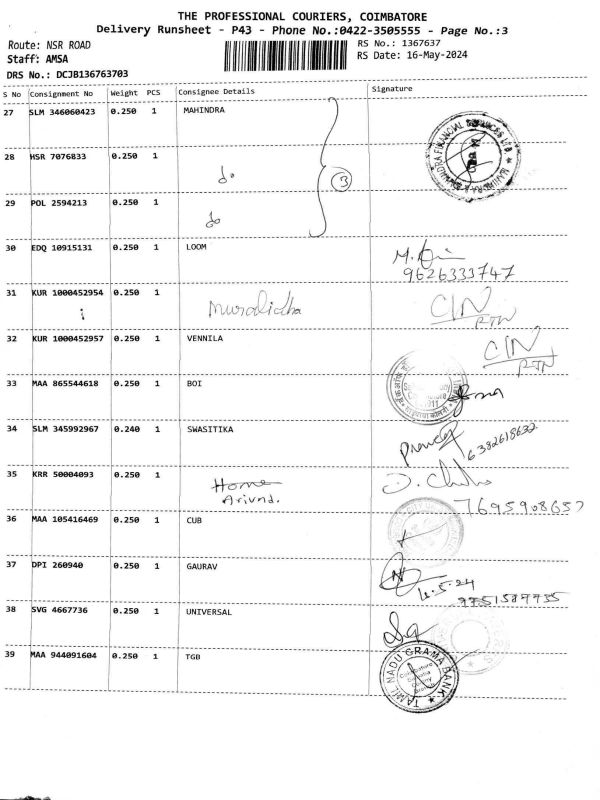 THE PROFESSIONAL COURIERS, COIMBATORE
Delivery Runsheet - P43 - Phone No.:0422-3505555 - Page No.:3
Route: NSR ROAD
RS No.: 1367637
Staff: AMSA
RS Date: 16-May-2024
DRS No.: DCJB136763703
S No Consignment No Weight PCS Consignee Details Signature
27 SLM 346060423 0.250 1 MAHINDRA
3
28 HSR 7076833 0.250 1 do
29 POL 2594213 0.250 1 do
30 EDQ 10915131 0.250 1 LOOM
9626333747
31 KUR 1000452954 0.250 1 C/N
RTN
32 KUR 1000452957 0.250 1 VENNILA C/N
RTN
33 MAA 865544618 0.250 1 BOI
34 SLM 345992967 0.240 1 SWASITIKA
6382618632
35 KRR 50004093 0.250 1 Home
Arivnd.
7695908657
36 MAA 105416469 0.250 1 CUB
37 DPI 260940 0.250 1 GAURAV
38 SVG 4667736 0.250 1 UNIVERSAL
39 MAA 944091604 0.250 1 TGB
TAMIL NADU GRAMA BANK